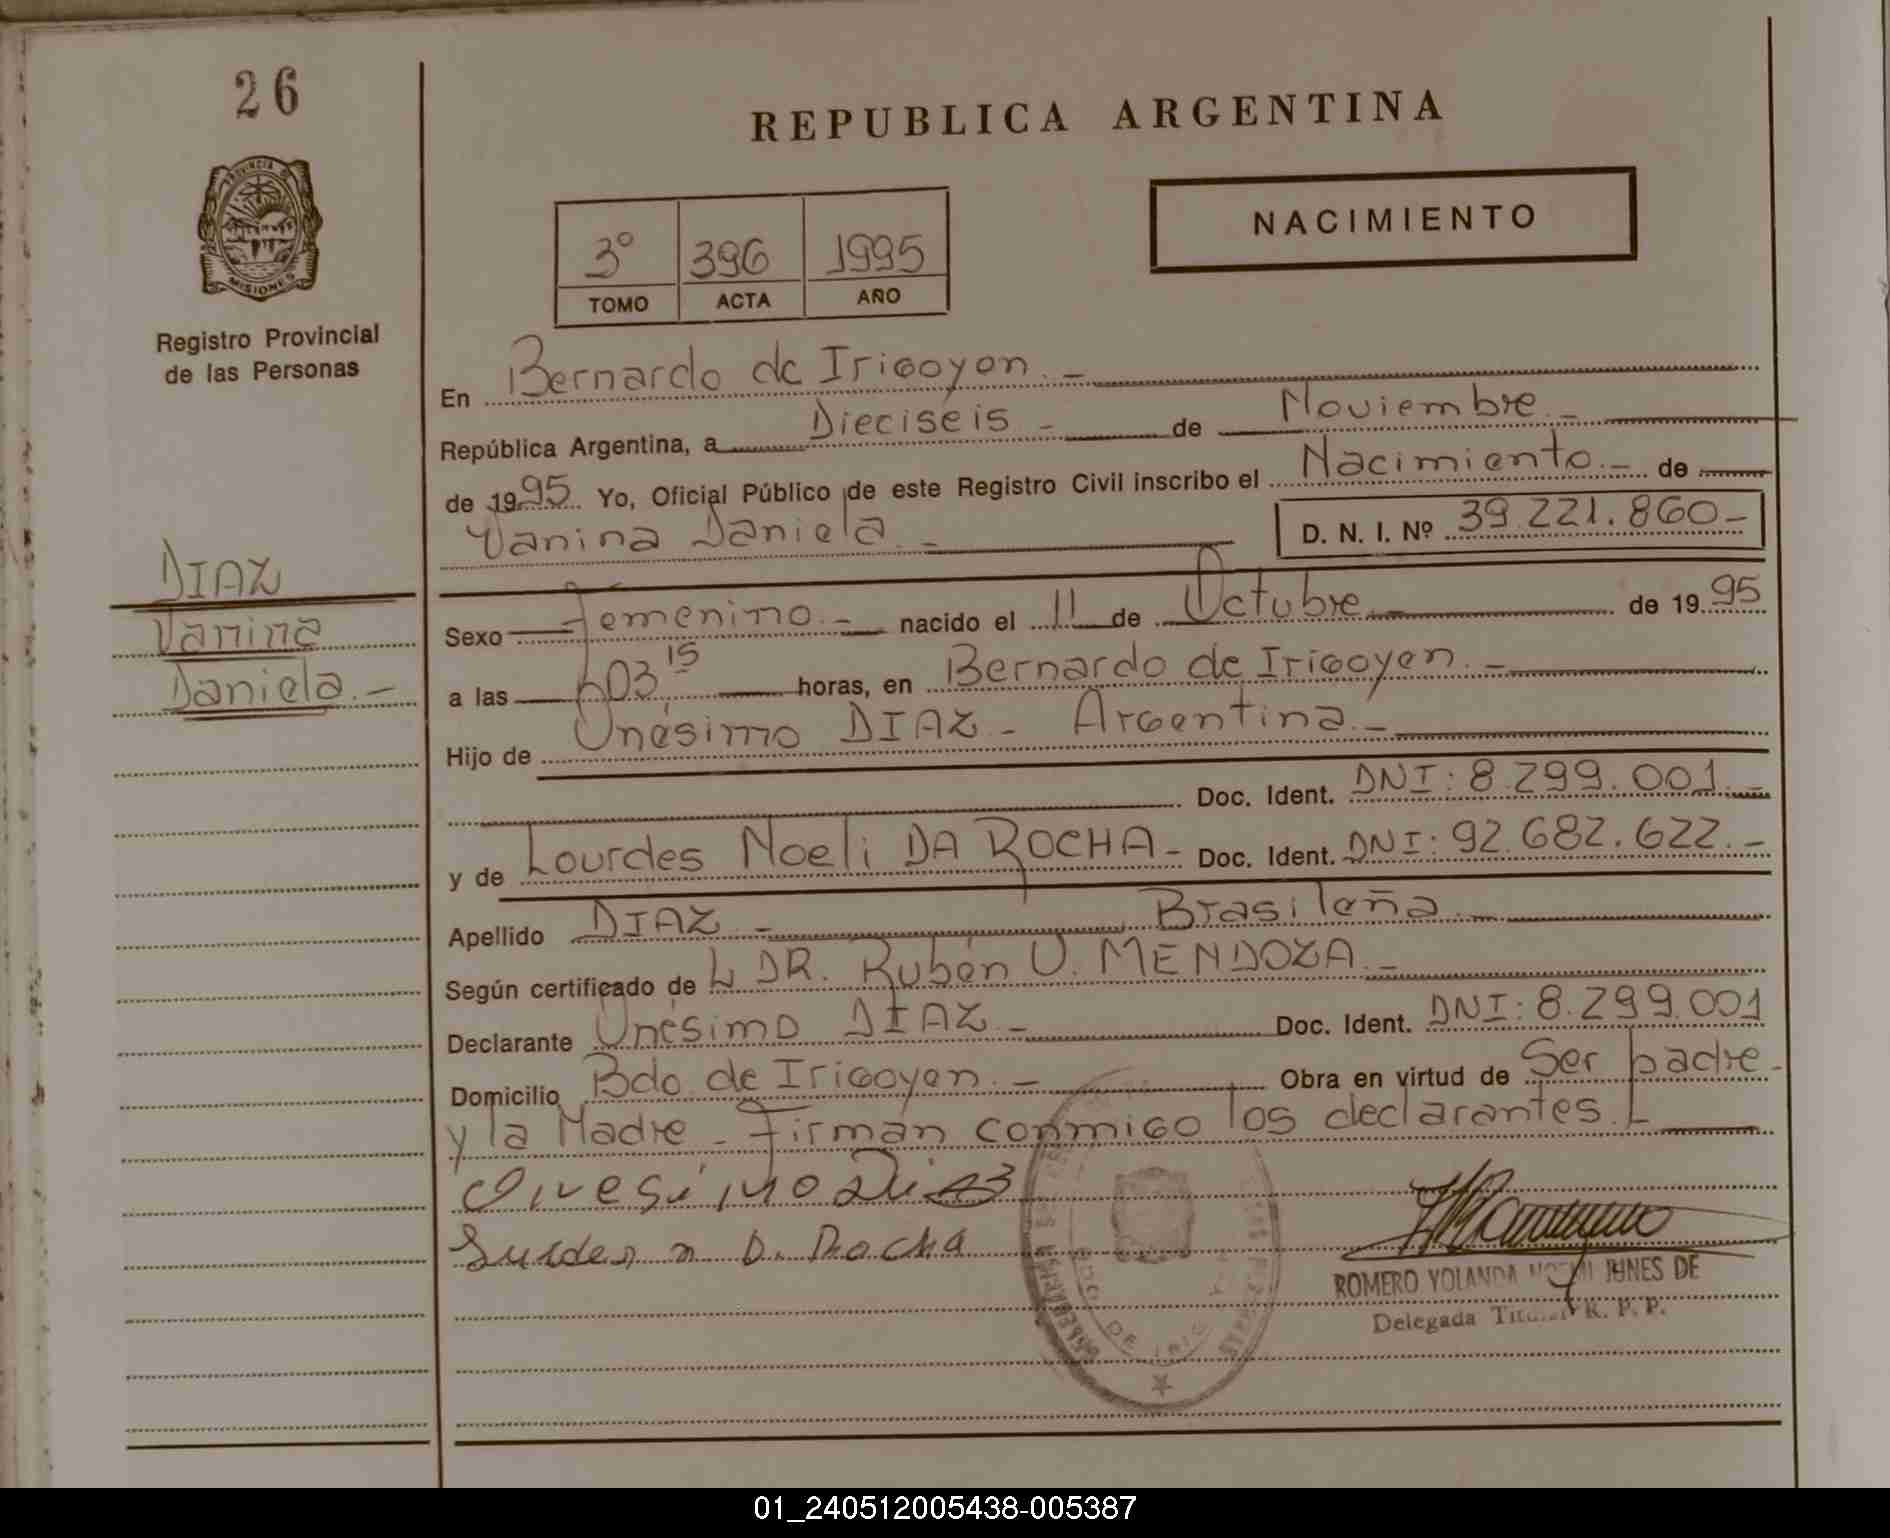 26
PROVINCIA DE
MISIONES
Registro Provincial
de las Personas
DIAZ
Vanina
Daniela.-
REPUBLICA ARGENTINA
NACIMIENTO
3º 396 1995
TOMO ACTA AÑO
En Bernardo de Irigoyen.-
República Argentina, a Dieciseis - de Noviembre.-
de 1995. Yo, Oficial Público de este Registro Civil inscribo el Nacimiento.- de
Vanina Daniela.- D. N. I. Nº 39.221.860-
Sexo Femenino.- nacido el 11 de Octubre.- de 1995
a las h03 15 horas, en Bernardo de Irigoyen.-
Hijo de Onésimo DIAZ - Argentina.-
Doc. Ident. DNI: 8.299.001.-
y de Lourdes Noeli DA ROCHA- Doc. Ident. DNI: 92.682.622.-
Apellido DIAZ - Brasileña.-
Según certificado de DR. Rubén U. MENDOZA.-
Declarante Onésimo DIAZ - Doc. Ident. DNI: 8.299.001
Domicilio Bdo. de Irigoyen.- Obra en virtud de Ser padre-
y la Madre - Firman conmigo los declarantes.
Onesimo Diaz
Lurdes n D. Rocha
ROMERO YOLANDA NOEMI DE
Delegada Titular R. P. P.
01_240512005438-005387